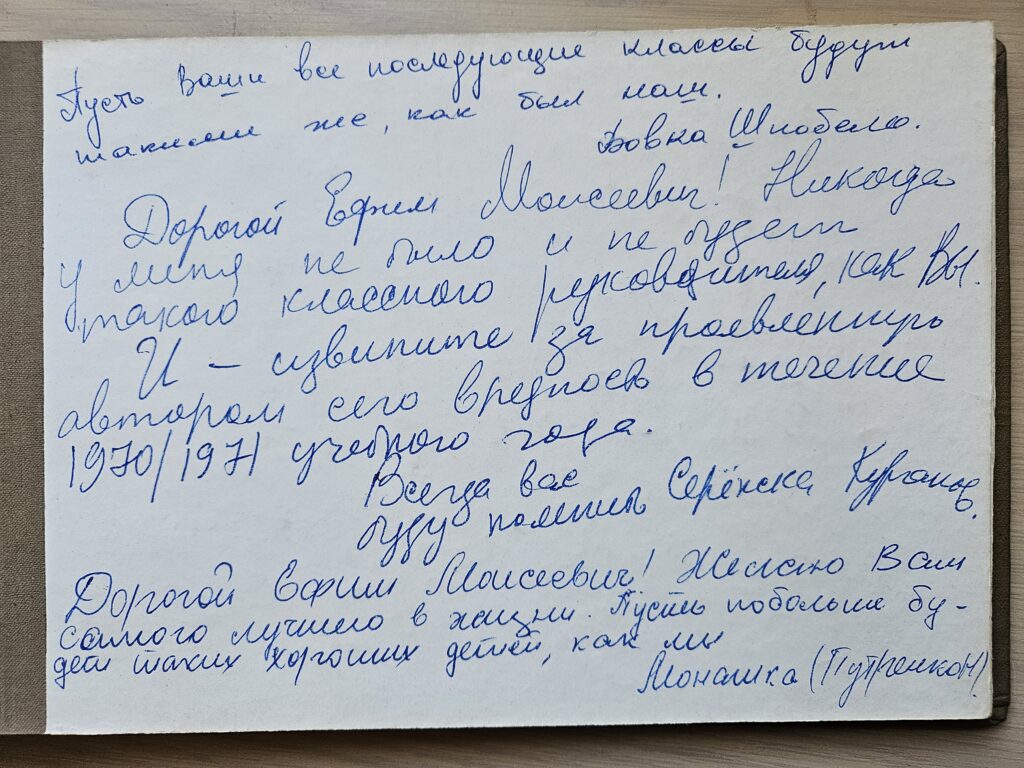 Пусть Ваши все последующие классы будут
такими же, как был наш.
Вовка Шнобель.
Дорогой Ефим Моисеевич! Никогда
у меня не было и не будет
такого классного руководителя, как Вы.
И – извините за проявленную
автором сего вредность в течение
1970/1971 учебного года.
Всегда вас
буду помнить Серёнька Курганов.
Дорогой Ефим Моисеевич! Желаю Вам
самого лучшего в жизни. Пусть побольше бу-
дет таких хороших детей, как мы
Монашка (Путренко Н)